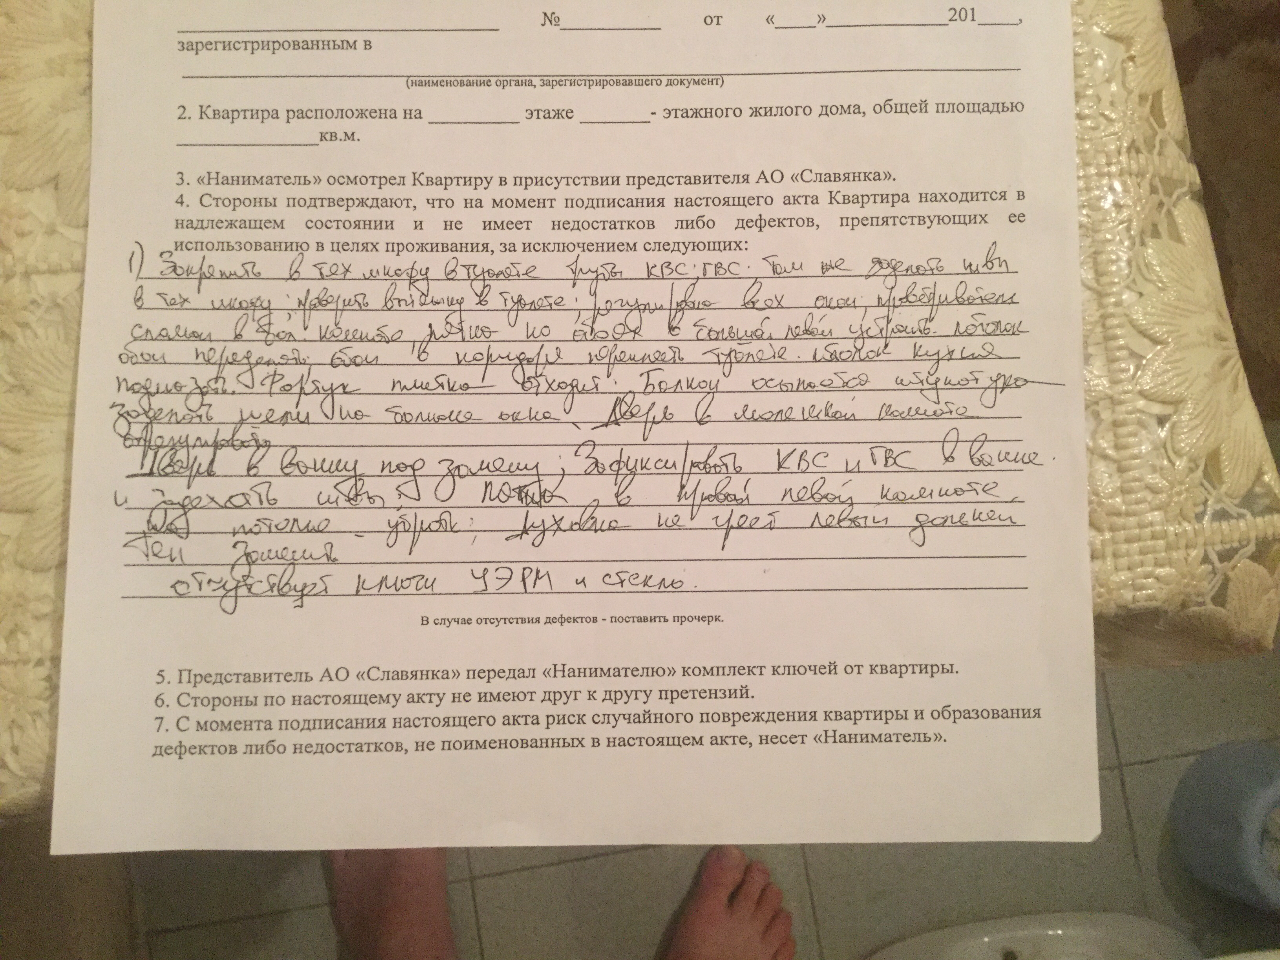 № от « » 201 ,
зарегистрированным в
(наименование органа, зарегистрировавшего документ)
2. Квартира расположена на этаже - этажного жилого дома, общей площадью
кв.м.
3. «Наниматель» осмотрел Квартиру в присутствии представителя АО «Славянка».
4. Стороны подтверждают, что на момент подписания настоящего акта Квартира находится в
надлежащем состоянии и не имеет недостатков либо дефектов, препятствующих ее
использованию в целях проживания, за исключением следующих:
1) Закрепить в тех шкафу в туалете трубы КВС; ГВС. Там же заделать швы
в тех шкафу; проверить вытяжку в туалете; всех окон;
сломан в бол. комнате, пятно на обоях в большой левой устранить. потолок
обои переделать, обои в коридоре туалете. потолок кухня
подмазать. Фартук плитка отходит. Балкон осыпается штукатурка
Заделать щели на балконе окна. Дверь в маленькой комнате
отрегулировать
Дверь в ванну под замену; Зафиксировать КВС и ГВС в ванне.
и заделать швы; пятна в правой левой комнате,
на потолке убрать; духовка не греет левый дальний
Тен Заменить
отсутствует ключи УЭРМ и стекло.
В случае отсутствия дефектов - поставить прочерк.
5. Представитель АО «Славянка» передал «Нанимателю» комплект ключей от квартиры.
6. Стороны по настоящему акту не имеют друг к другу претензий.
7. С момента подписания настоящего акта риск случайного повреждения квартиры и образования
дефектов либо недостатков, не поименованных в настоящем акте, несет «Наниматель».